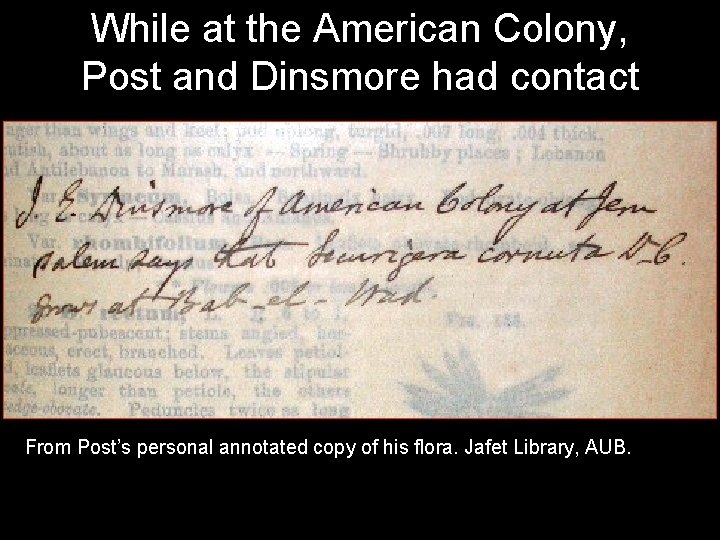 While at the American Colony,
Post and Dinsmore had contact
than wings and keel; pod oblong, turgid, .007 long, .004 thick,
about as long as calyx — Spring — Shrubby places ; Lebanon
and Antilebanon to Marash, and northward.
J. E. Dinsmore of American Colony at Jeru
Var. rhombifolium
salem says that Securigera cornuta D-C.
grows at Bab-el-Wad.
L. ♃ .6 to 1.
appressed-pubescent; stems angled, her-
baceous, erect, branched. Leaves petiol-
leaflets glaucous below, the stipular
longer than petiole, the others
wedge-obovate. Peduncles twice as long
From Post’s personal annotated copy of his flora. Jafet Library, AUB.